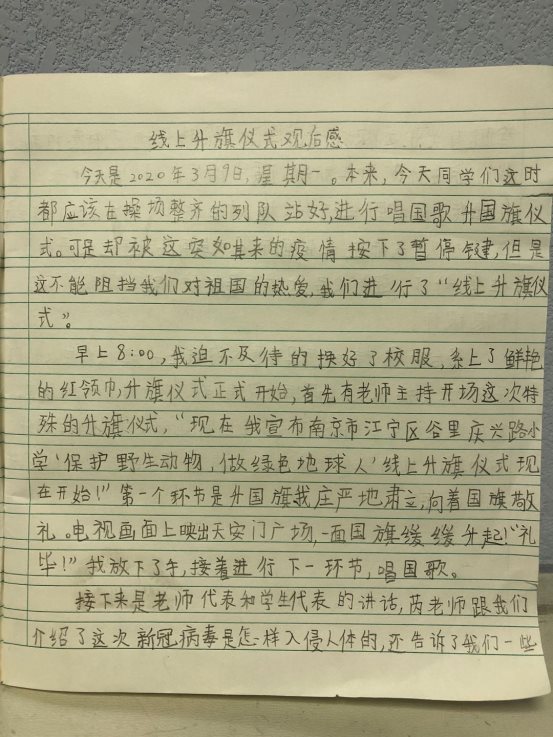 线上升旗仪式观后感
今天是2020年3月9日,星期一。本来,今天同学们这时
都应该在操场整齐的列队站好,进行唱国歌升国旗仪
式。可是却被这突如其来的疫情按下了暂停键,但是
这不能阻挡我们对祖国的热爱,我们进行了“线上升旗仪
式”。
早上8:00,我迫不及待的换好了校服,系上了鲜艳
的红领巾,升旗仪式正式开始,首先有老师主持开场这次特
殊的升旗仪式,“现在我宣布南京市江宁区谷里庆兴路小
学‘保护野生动物,做绿色地球人’线上升旗仪式现
在开始!”第一个环节是升国旗我庄严地肃立,向着国旗敬
礼。电视画面上映出天安门广场,一面国旗缓缓升起!“礼
毕!”我放下了手,接着进行下一环节,唱国歌。
接下来是老师代表和学生代表的讲话,芮老师跟我们
介绍了这次新冠病毒是怎样入侵人体的,还告诉了我们一些